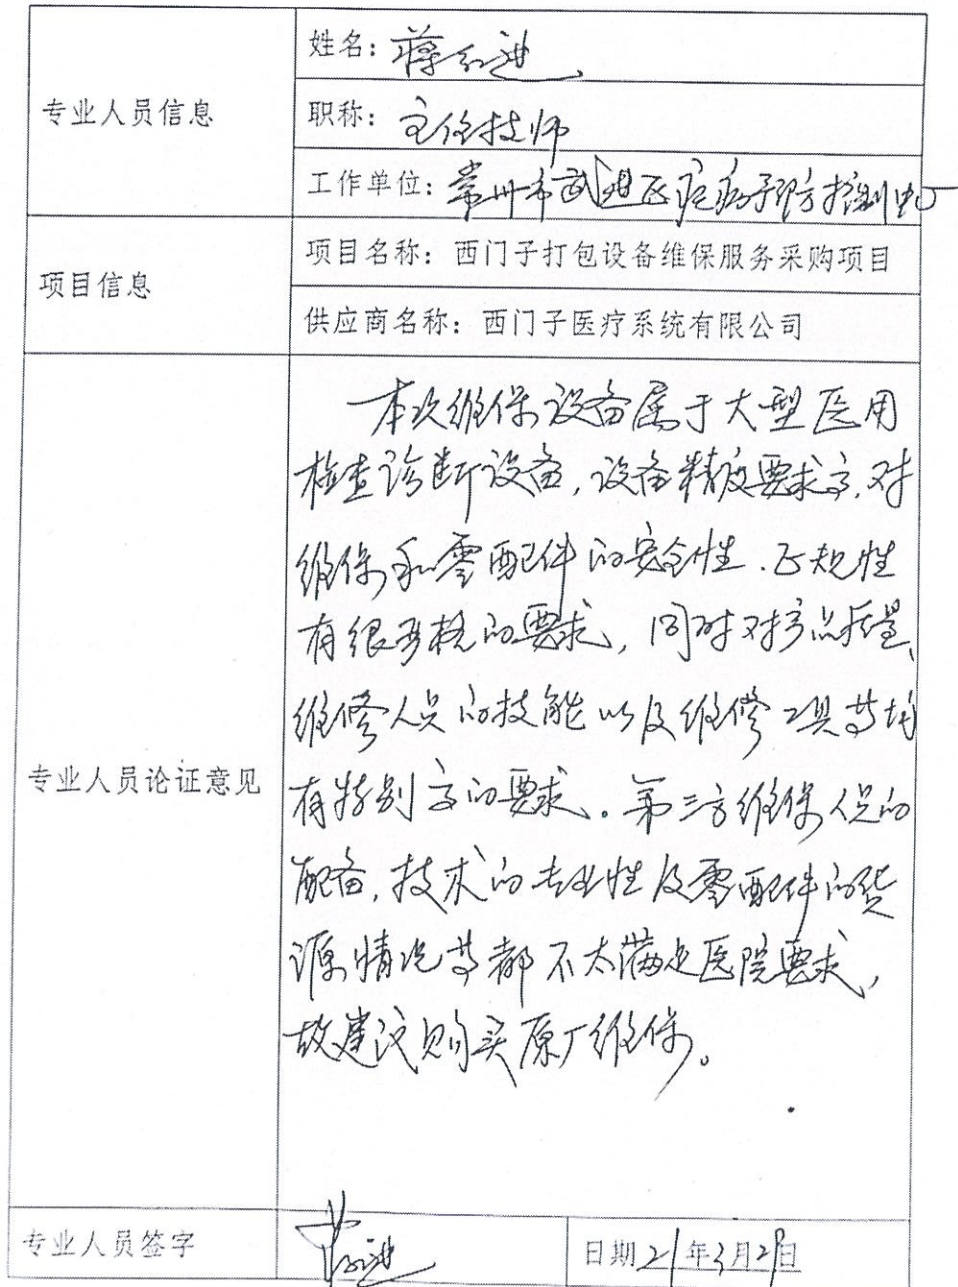 姓名：蒋红进
专业人员信息
职称：主任技师
工作单位：常州市武进区疾病预防控制中心
项目信息
项目名称：西门子打包设备维保服务采购项目
供应商名称：西门子医疗系统有限公司
本次维保设备属于大型医用
检查诊断设备，设备精度要求高，对
维保和零配件的安全性、正规性
有很严格的要求，同时对产品质量、
维修人员的技能以及维修工具等均
专业人员论证意见
有特别高的要求。第三方维保人员的
配备，技术的专业性及零配件的货
源情况等都不太满足医院要求，
故建议购买原厂维保。
专业人员签字
日期21年3月29日